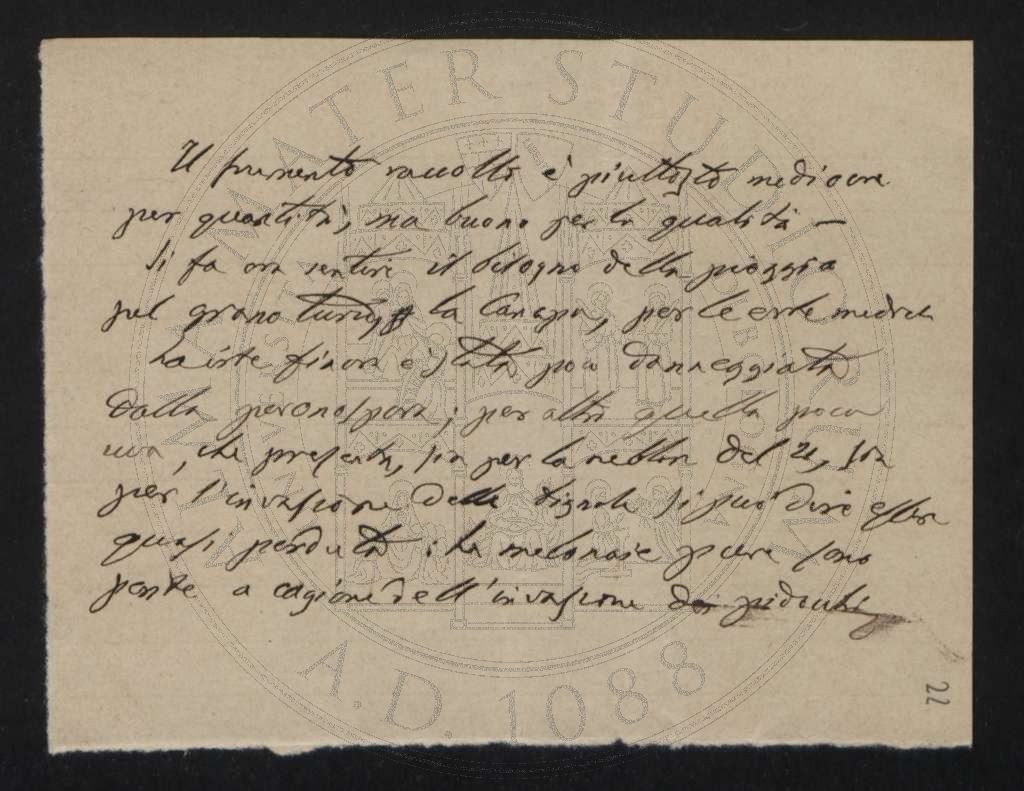 Il frumento raccolto è piuttosto mediocre
per quantità, ma buono per la qualità –
Si fa ora sentire il bisogno della pioggia
pel grano turco, la Canapa, per le erbe mediche
La vite finora è stata poco danneggiata
dalla peronospora; per altro quella poca
uva, che presenta, sia per la nebbia del 21, sia
per l'invasione delle tignole si può dire essere
quasi perduta: le melonaie pure sono
perdute a cagione dell'invasione dei pidocchi
22
ALMA MATER STUDIORUM
A.D. 1088